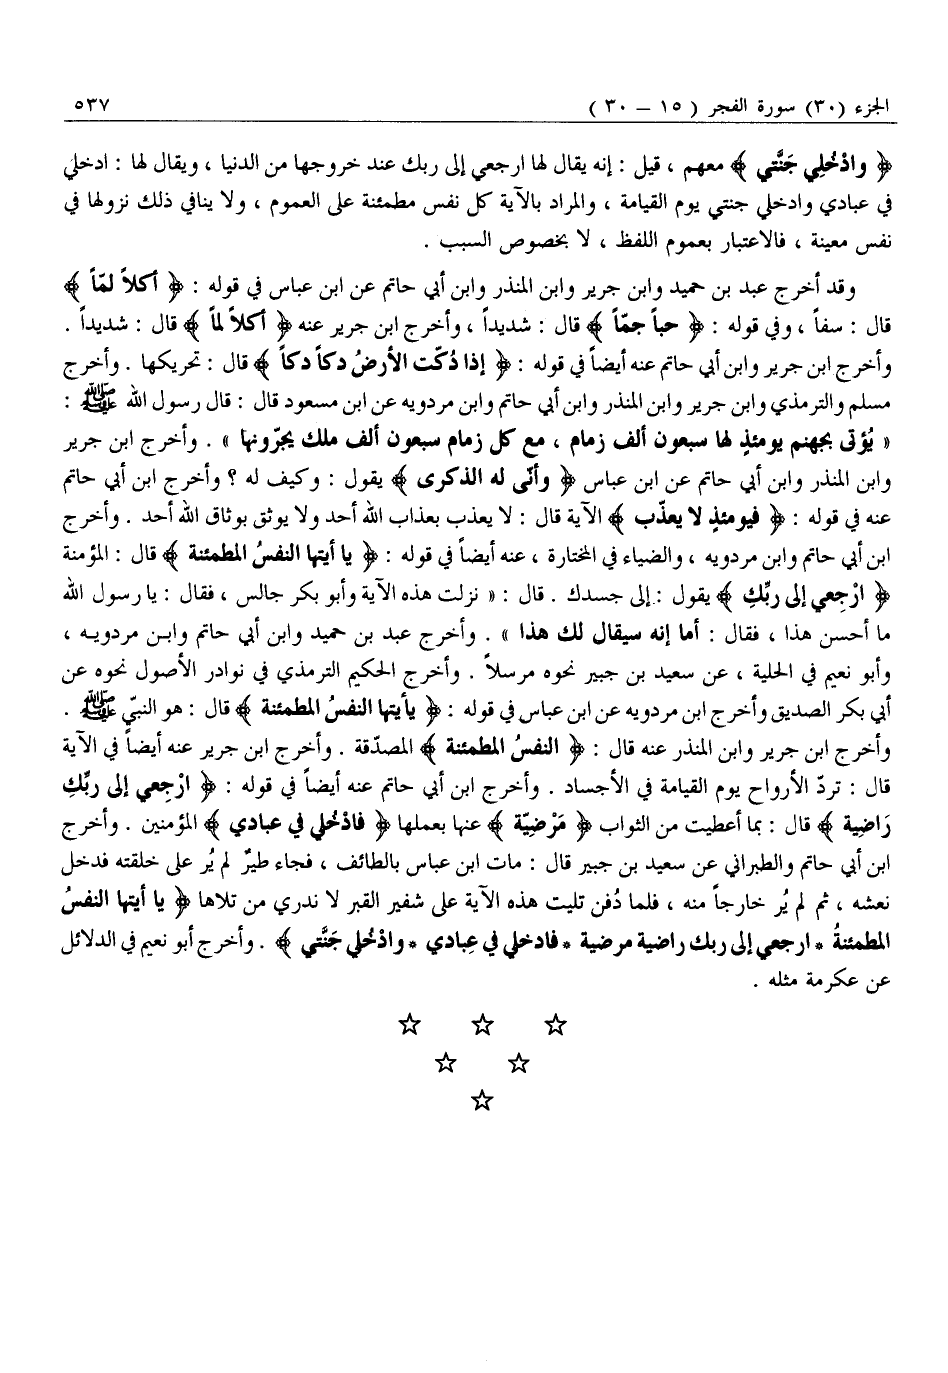 الجزء (٣٠) سورة الفجر ( ١٥ – ٣٠ ) ٥٣٧
﴿ وادْخُلِي جَنَّتي ﴾ معهم ، قيل : إنه يقال لها ارجعي إلى ربك عند خروجها من الدنيا ، ويقال لها : ادخلي
في عبادي وادخلي جنتي يوم القيامة ، والمراد بالآية كل نفس مطمئنة على العموم ، ولا ينافي ذلك نزولها في
نفس معينة ، فالاعتبار بعموم اللفظ ، لا بخصوص السبب .
وقد أخرج عبد بن حميد وابن جرير وابن المنذر وابن أبي حاتم عن ابن عباس في قوله : ﴿ أكلاً لمّاً ﴾
قال : سفاً ، وفي قوله : ﴿ حباً جمّاً ﴾ قال : شديداً ، وأخرج ابن جرير عنه ﴿ أكلاً لماً ﴾ قال : شديداً .
وأخرج ابن جرير وابن أبي حاتم عنه أيضاً في قوله : ﴿ إذا دُكّت الأرضُ دكاً دكاً ﴾ قال : تحريكها . وأخرج
مسلم والترمذي وابن جرير وابن المنذر وابن أبي حاتم وابن مردويه عن ابن مسعود قال : قال رسول الله ﷺ :
« يُؤتى بجهنم يومئذٍ لها سبعون ألف زمام ، مع كل زمام سبعون ألف ملك يجرّونها » . وأخرج ابن جرير
وابن المنذر وابن أبي حاتم عن ابن عباس ﴿ وأنّى له الذكرى ﴾ يقول : وكيف له ؟ وأخرج ابن أبي حاتم
عنه في قوله : ﴿ فيومئذٍ لا يعذّب ﴾ الآية قال : لا يعذب بعذاب الله أحد ولا يوثق بوثاق الله أحد . وأخرج
ابن أبي حاتم وابن مردويه ، والضياء في المختارة ، عنه أيضاً في قوله : ﴿ يا أيتها النفسُ المطمئنة ﴾ قال : المؤمنة
﴿ ارْجِعي إلى ربِّكِ ﴾ يقول : إلى جسدك . قال : « نزلت هذه الآية وأبو بكر جالس ، فقال : يا رسول الله
ما أحسن هذا ، فقال : أما إنه سيقال لك هذا » . وأخرج عبد بن حميد وابن أبي حاتم وابن مردويه ،
وأبو نعيم في الحلية ، عن سعيد بن جبير نحوه مرسلاً . وأخرج الحكيم الترمذي في نوادر الأصول نحوه عن
أبي بكر الصديق وأخرج ابن مردويه عن ابن عباس في قوله : ﴿ يأيتها النفسُ المطمئنة ﴾ قال : هو النبيّ ﷺ .
وأخرج ابن جرير وابن المنذر عنه قال : ﴿ النفسُ المطمئنة ﴾ المصدّقة . وأخرج ابن جرير عنه أيضاً في الآية
قال : تردّ الأرواح يوم القيامة في الأجساد . وأخرج ابن أبي حاتم عنه أيضاً في قوله : ﴿ ارْجِعي إلى ربِّكِ
رَاضِية ﴾ قال : بما أعطيت من الثواب ﴿ مَرْضِيّة ﴾ عنها بعملها ﴿ فاذْخُلي في عبادي ﴾ المؤمنين . وأخرج
ابن أبي حاتم والطبراني عن سعيد بن جبير قال : مات ابن عباس بالطائف ، فجاء طيرٌ لم يُر على خلقته فدخل
نعشه ، ثم لم يُر خارجاً منه ، فلما دُفن تليت هذه الآية على شفير القبر لا ندري من تلاها ﴿ يا أيتها النفسُ
المطمئنةُ * ارجعي إلى ربك راضية مرضية * فادخلي في عِبادي * وادْخُلي جَنَّتي ﴾ . وأخرج أبو نعيم في الدلائل
عن عكرمة مثله .